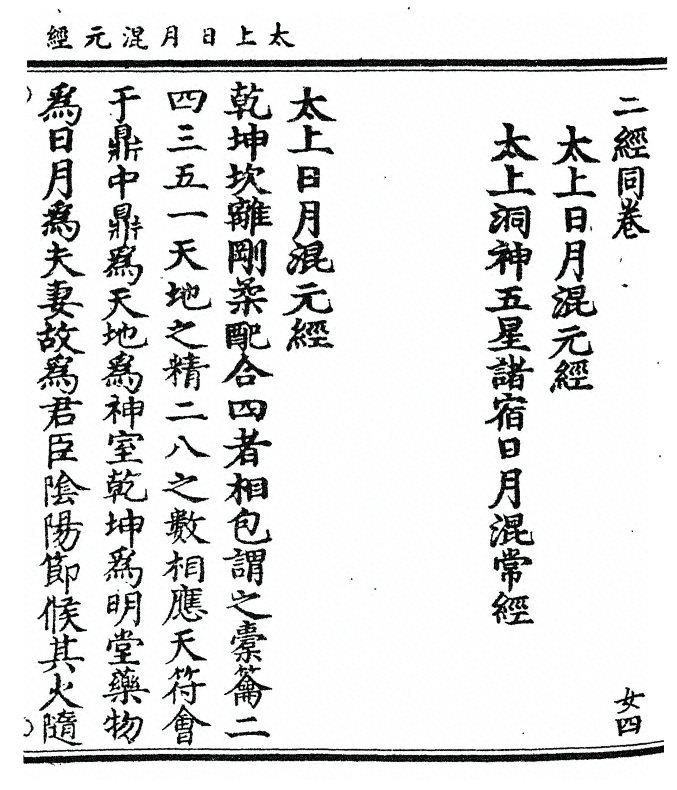 太上日月混元經
二經同卷
女四
太上日月混元經
太上洞神五星諸宿日月混常經
太上日月混元經
乾坤坎離剛柔配合四者相包謂之橐籥二
四三五一天地之精二八之數相應天符會
于鼎中鼎爲天地爲神室乾坤爲明堂藥物
爲日月爲夫妻故爲君臣陰陽節候其火隨